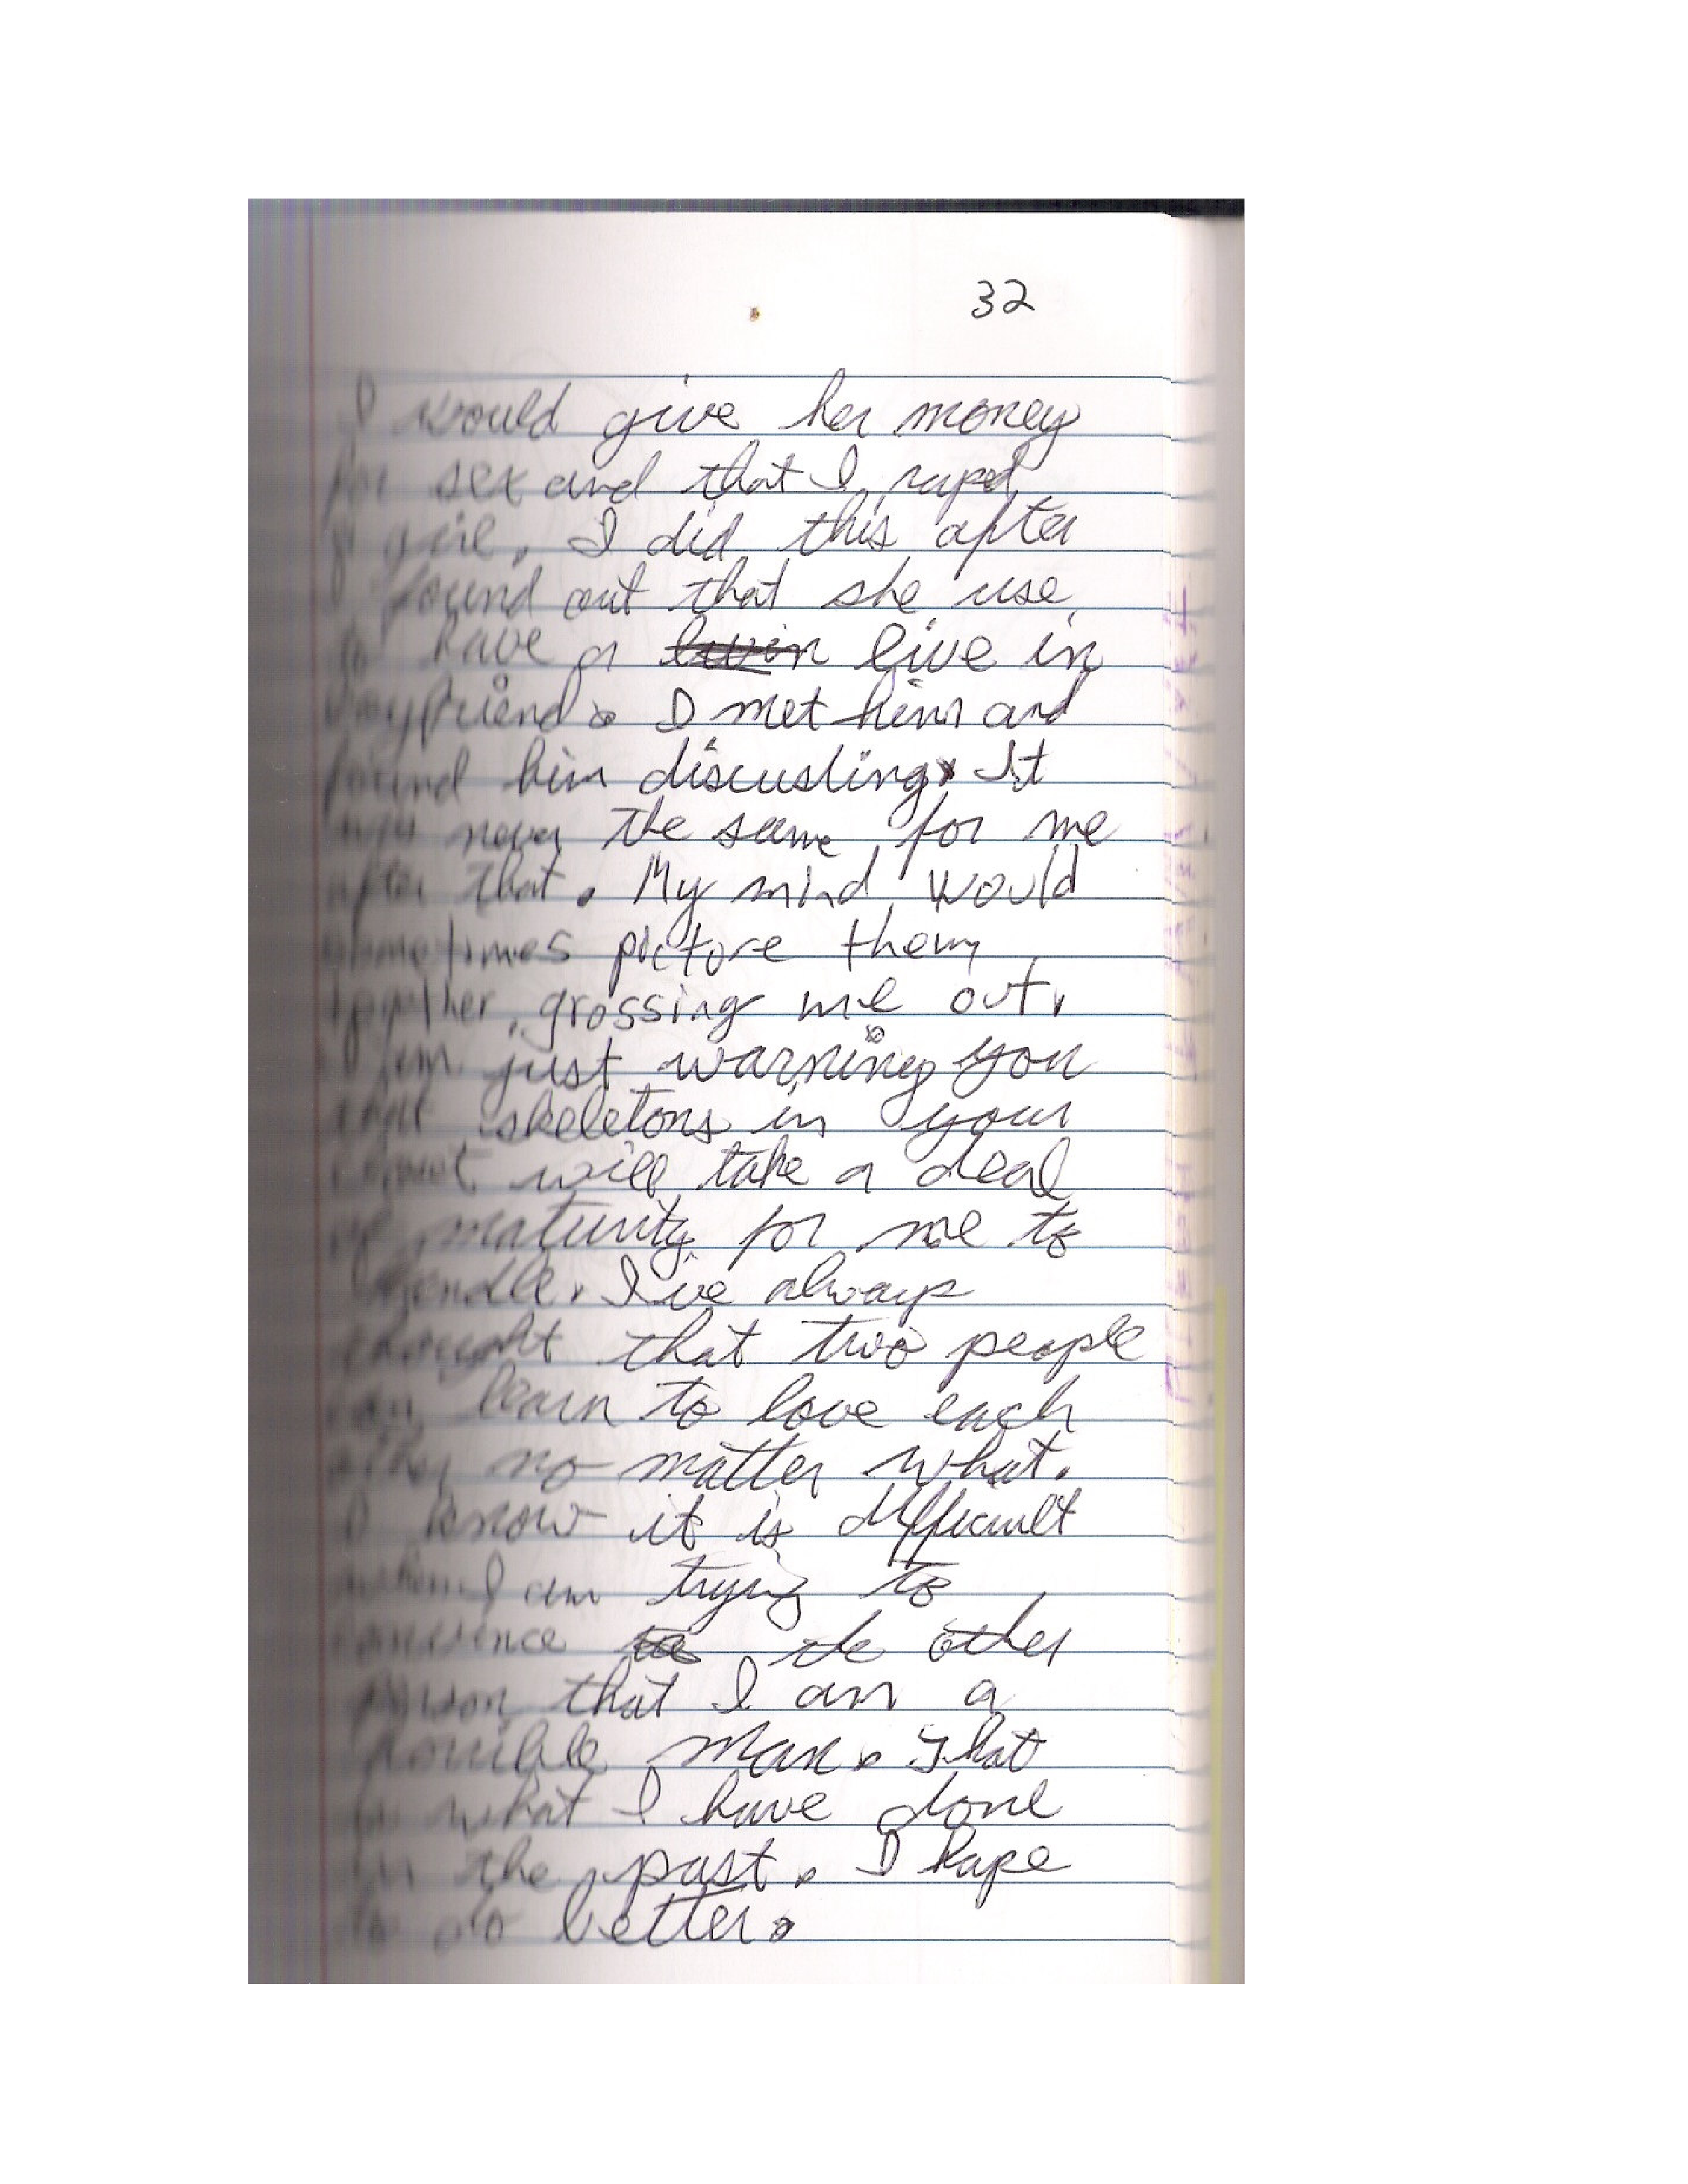 32
I would give her money
for sex and that I raped
a girl. I did this after
I found out that she use
to have a live in
boyfriend. I met him and
found him discusting. It
was never the same for me
after that. My mind would
sometimes picture them
together, grossing me out.
I am just warning you
that skeletons in your
closet will take a deal
of maturity for me to
handle. I've always
thought that two people
can learn to love each
other no matter what.
I know it is difficult
when I am trying to
convince the other
person that I am a
horrible man. That
is what I have done
in the past. I hope
to do better.